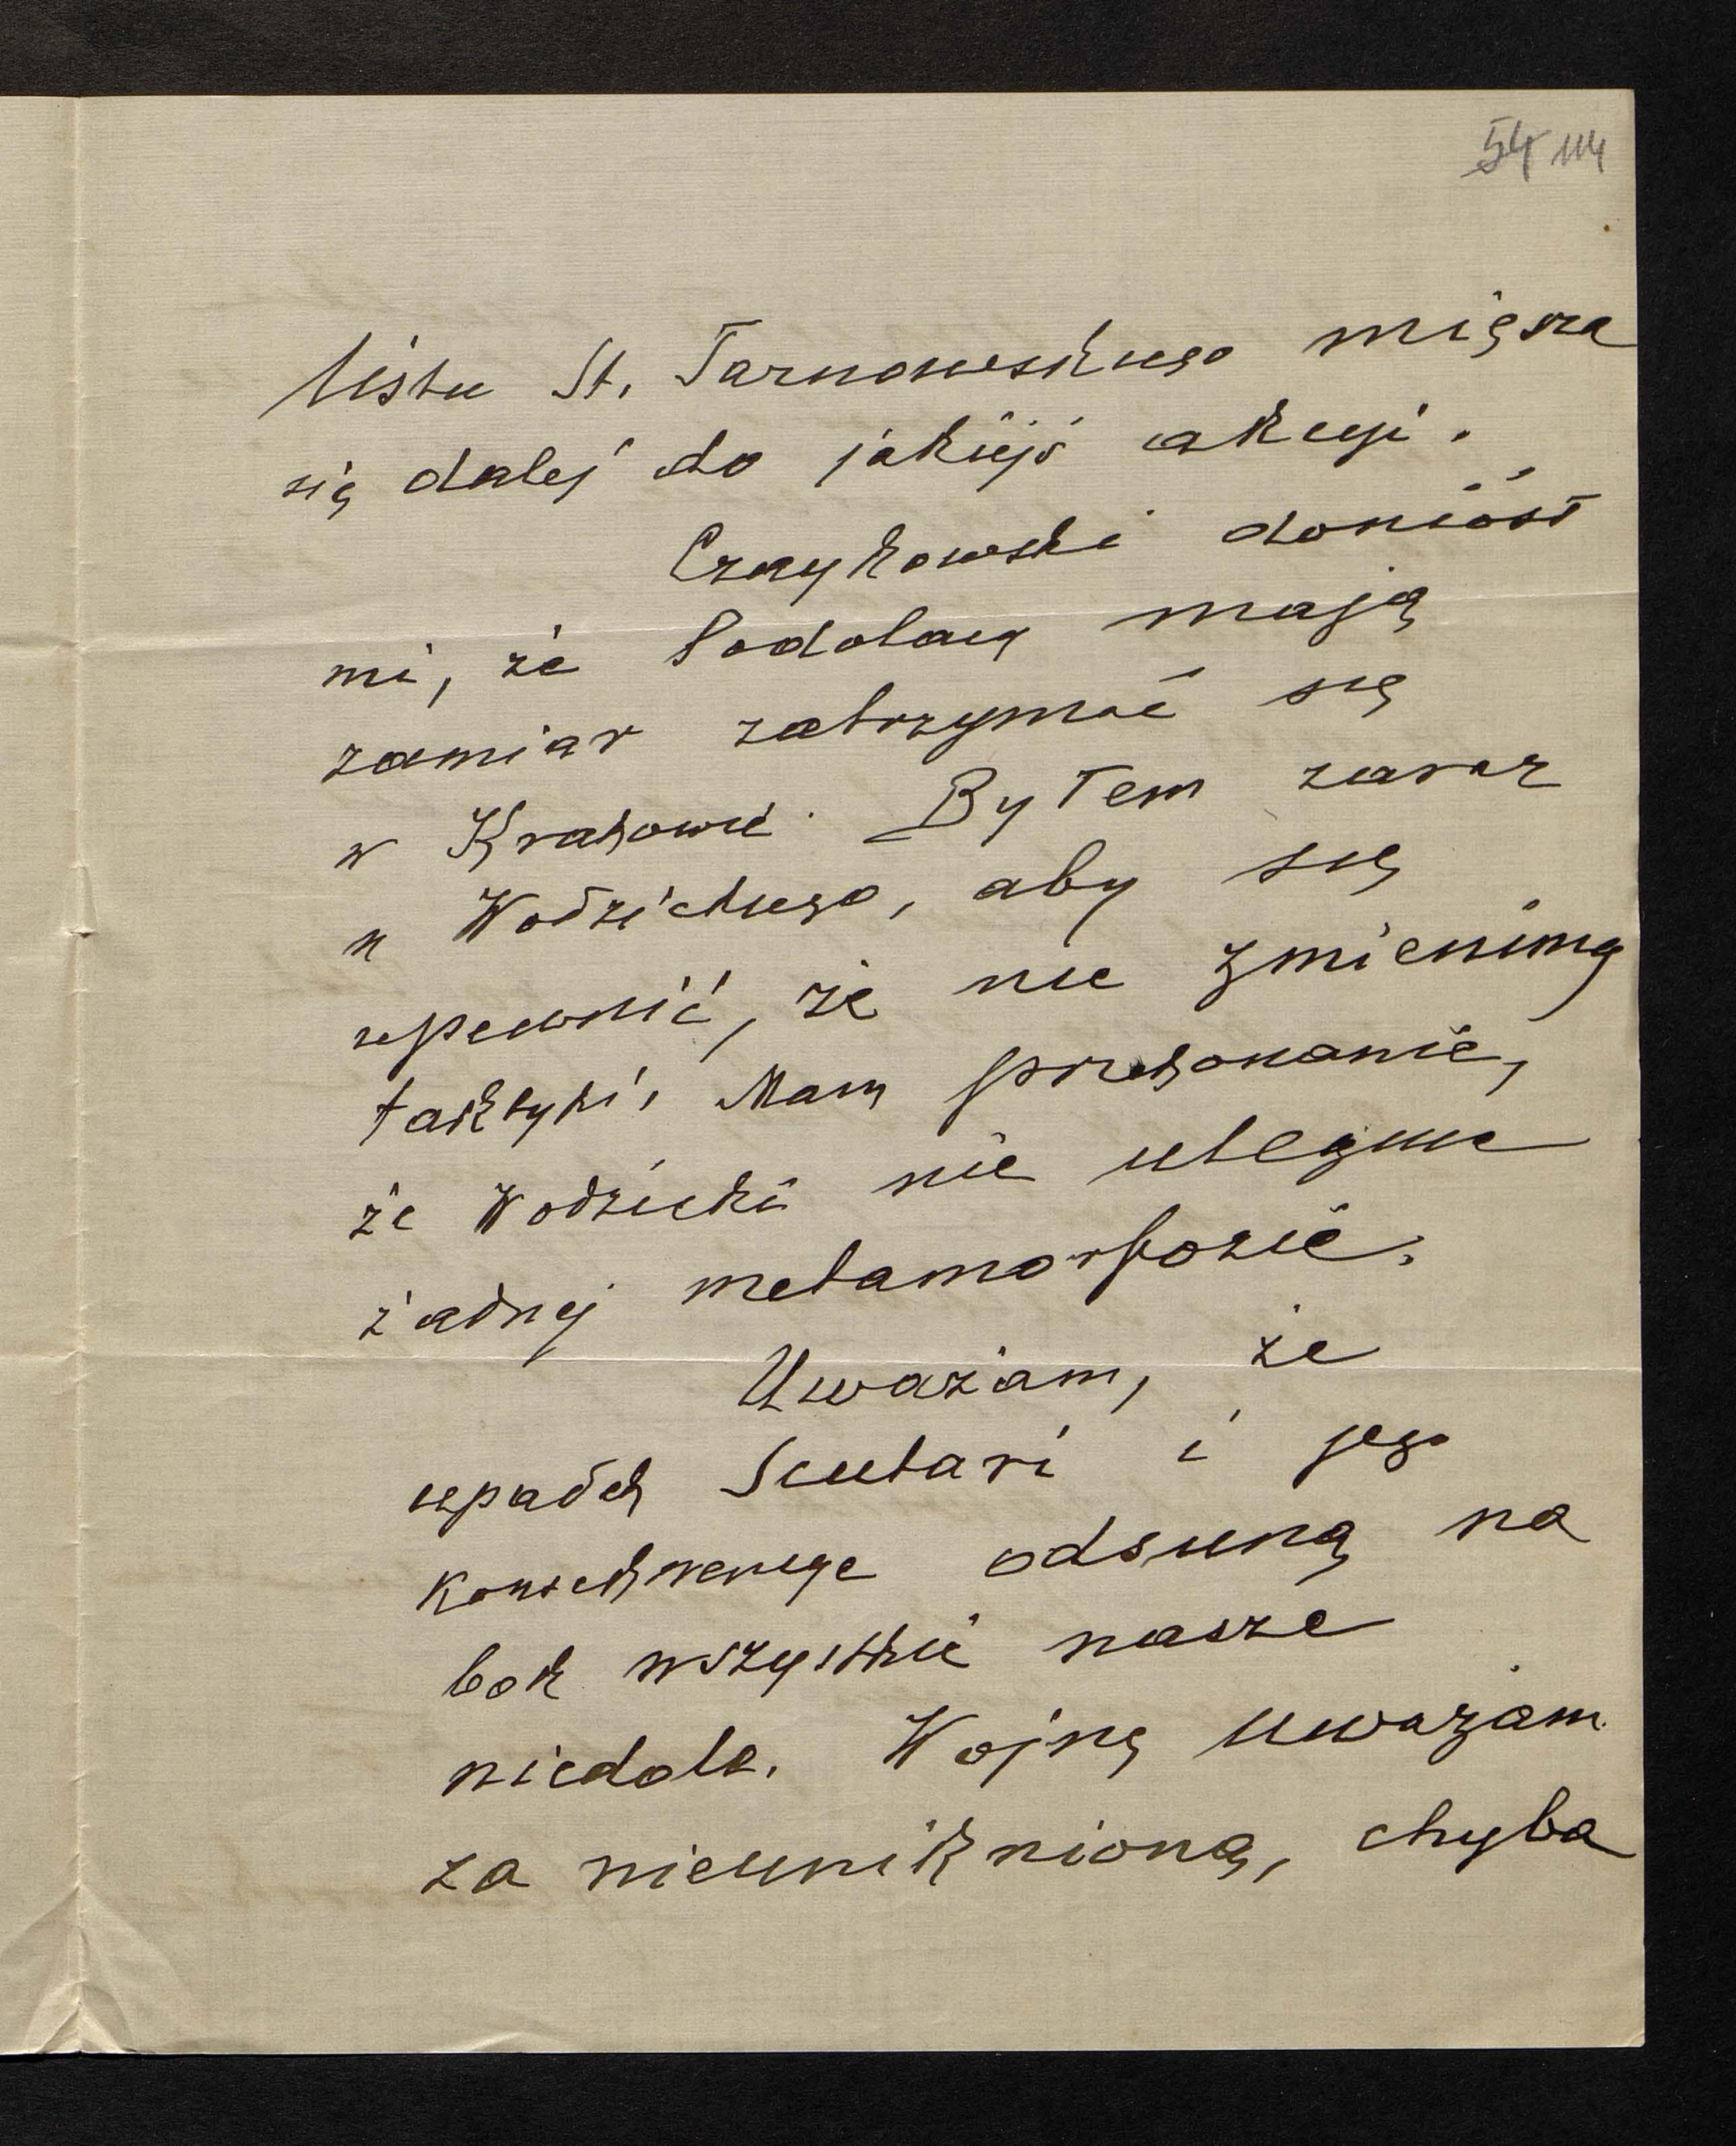 54 114
listu St. Tarnowskiego mięsza
się dalej do jakiejś akcyi.
Czaykowski doniósł
mi, że Podolacy mają
zamiar zatrzymać się
w Krakowie. Byłem zaraz
u Wodzickiego, aby się
upewnić, że nie zmienimy
taktyki, Mam przekonanie,
że Wodzicki nie ulegnie
żadnej metamorfozie.
Uważam, że
upadek Scutari i jego
konsekwencye odsuną na
bok wszystkie nasze
niedole. Wojnę uważam
za nieuniknioną, chyba